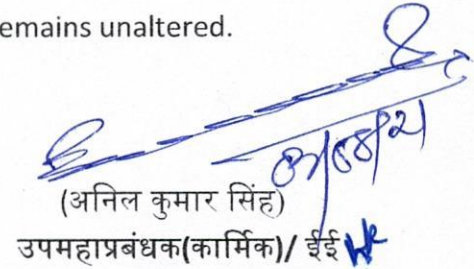 emains unaltered.
(अनिल कुमार सिंह)
उपमहाप्रबंधक(कार्मिक)/ ईई